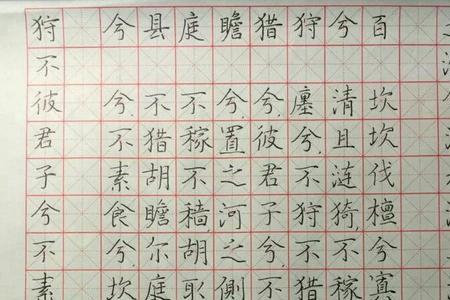 百
坎坎伐檀兮寘
兮
清且涟猗,不稼
狩
廛兮,不狩不猎
猎
兮,彼君子兮,不
瞻
兮,置之河之侧
庭
不稼不穑胡取
县
不猎胡瞻尔庭
兮
兮,不素食兮,坎
狩不彼君子兮不素